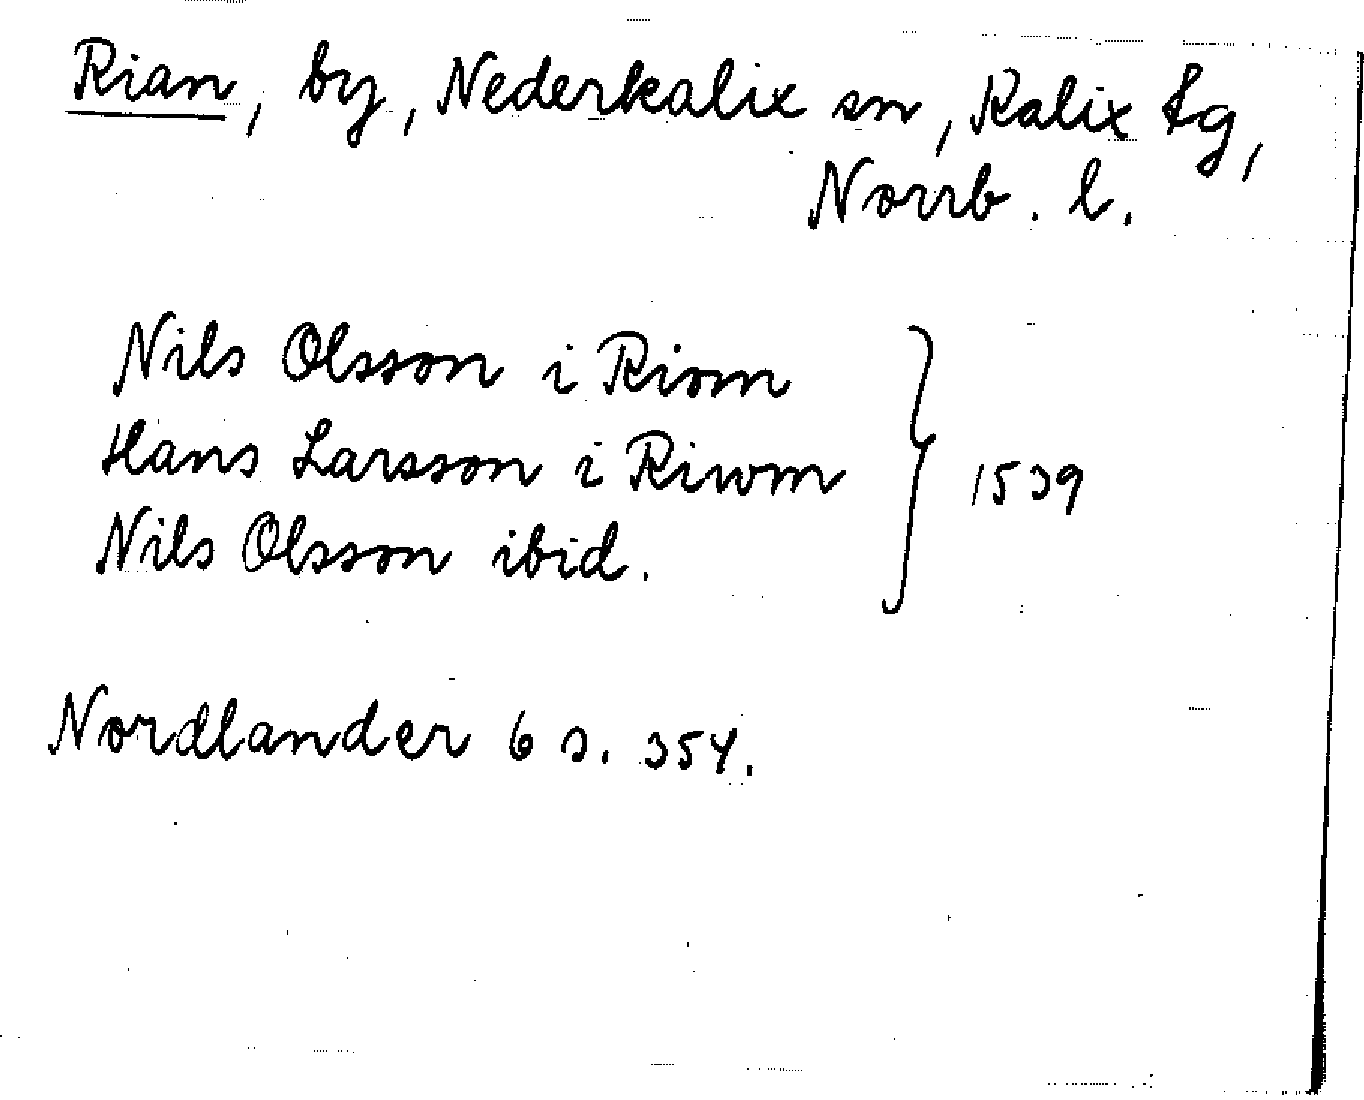 Rian, by, Nederkalix sn, Kalix tg,
Norrb. l.
Nils Olsson i Riom
Hans Larsson i Riwm
Nils Olsson ibid.
1539
Nordlander 6 s. 354.